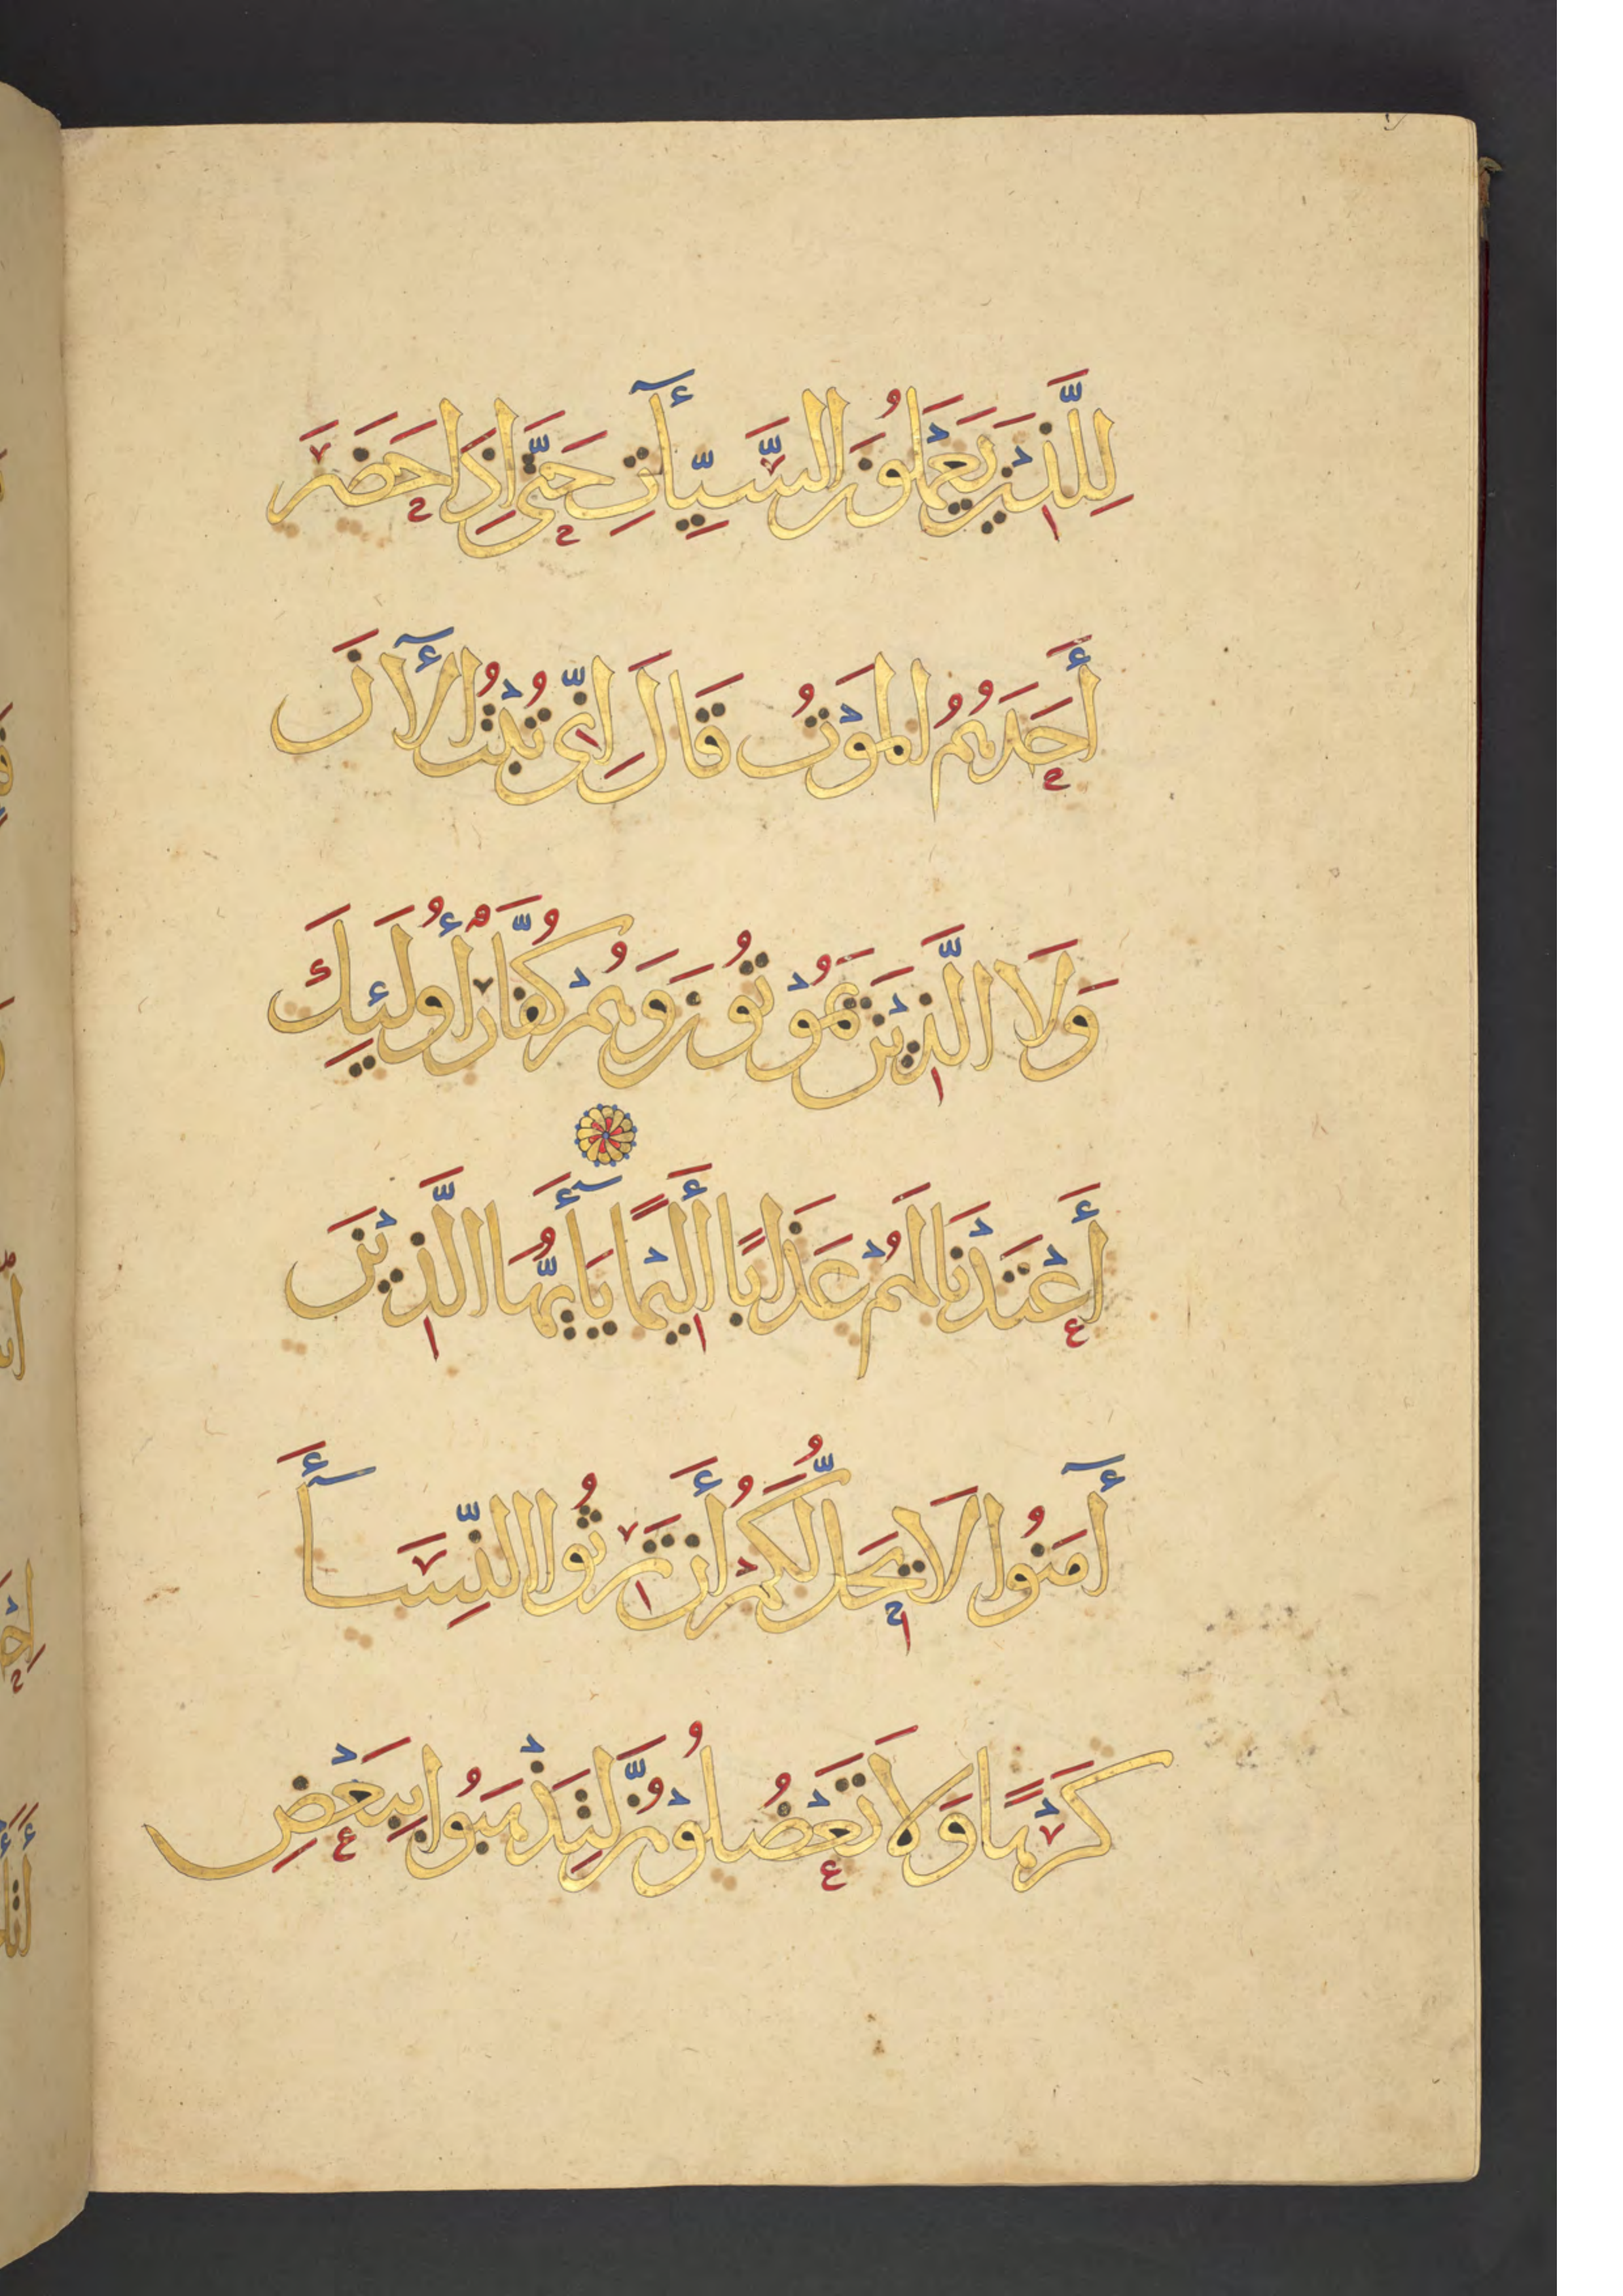 لِلَّذِينَ يَعْمَلُونَ السَّيِّأٓتِ حَتَّى إِذَا حَضَرَ
أَحَدَهُمُ الْمَوْتُ قَالَ إِنِّي تُبْتُ الْأٓنَ
وَلَا الَّذِيْنَ يَمُوْتُونَ وَهُمْ كُفَّارٌ أُولَئِكَ
أَعْتَدْنَا لَهُمْ عَذَابًا أَلِيْمًا يَا أَيُّهَا الَّذِيْنَ
أٓمَنُوا لَا يَحِلُّ لَكُمْ أَنْ تَرِثُوا النِّسَآأَ
كَرْهًا وَلَا تَعْضُلُوْهُنَّ لِتَذْهَبُوا بِبَعْضِ